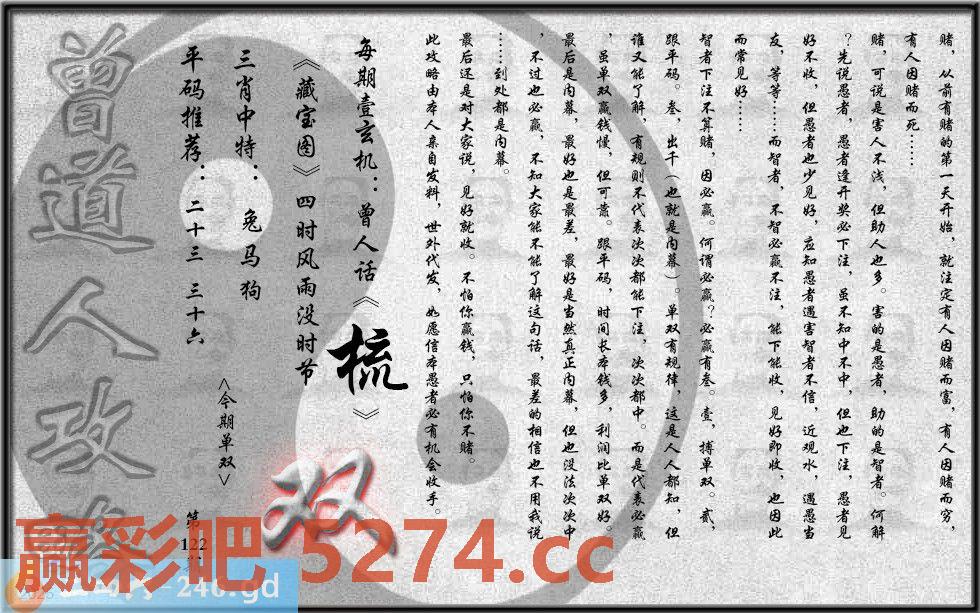 赌，从前有赌的第一天开始，就注定有人因赌而富，有人因赌而穷，
有人因赌而死……
赌，可说是害人不浅，但助人也多。害的是愚者，助的是智者。何解
？先说愚者，愚者逢开奖必下注，虽不知中不中，但也下注，愚者见
好不收，但愚者也少见好，应知愚者遇害智者不信，近观水，遇愚当
友，等等……而智者，不智必赢不注，能下能收，见好即收，也因此
而常见好……
智者下注不算赌，因必赢。何谓必赢？必赢有叁。壹，搏单双。贰，
跟平码。叁，出千（也就是内幕）。单双有规律，这是人人都知，但
谁又能了解，有规则不代表次次都能下注，次次都中。而是代表必赢
，虽单双赢钱慢，但可靠。跟平码，时间长本钱多，利润比单双好。
最后是内幕，最好也是最差，最好是当然真正内幕，但也没法次次中
，不过也必赢，不知大家能不能了解这句话，最差的相信也不用我说
……到处都是内幕。
最后还是对大家说，见好就收。不怕你赢钱，只怕你不赌。
此攻略由本人亲自发料，世外代发，如愿信本愚者必有机会收手。
每期壹玄机：曾人话《梳》
《藏宝图》四时风雨没时节
三肖中特：兔马狗
平码推荐：二十三 三十六
<今期单双>
双
第122
曾道人攻
赢彩吧 5274.cc
246.gd